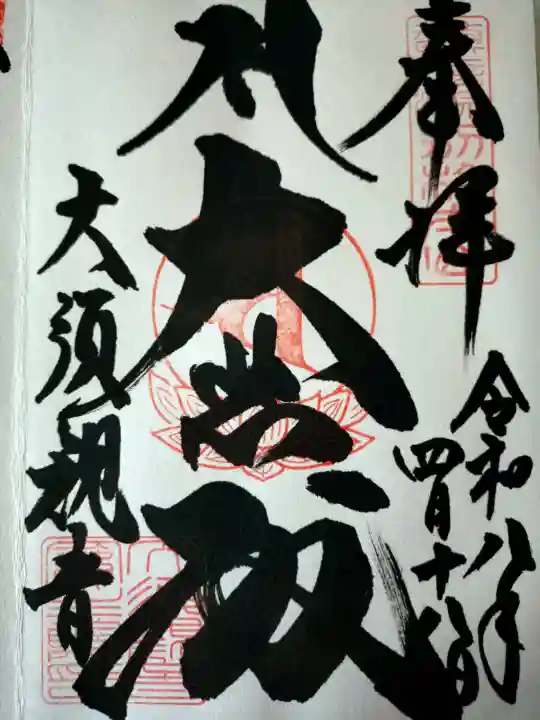 奉拝
令和八年
四月十八日
大悲殿
大須観音